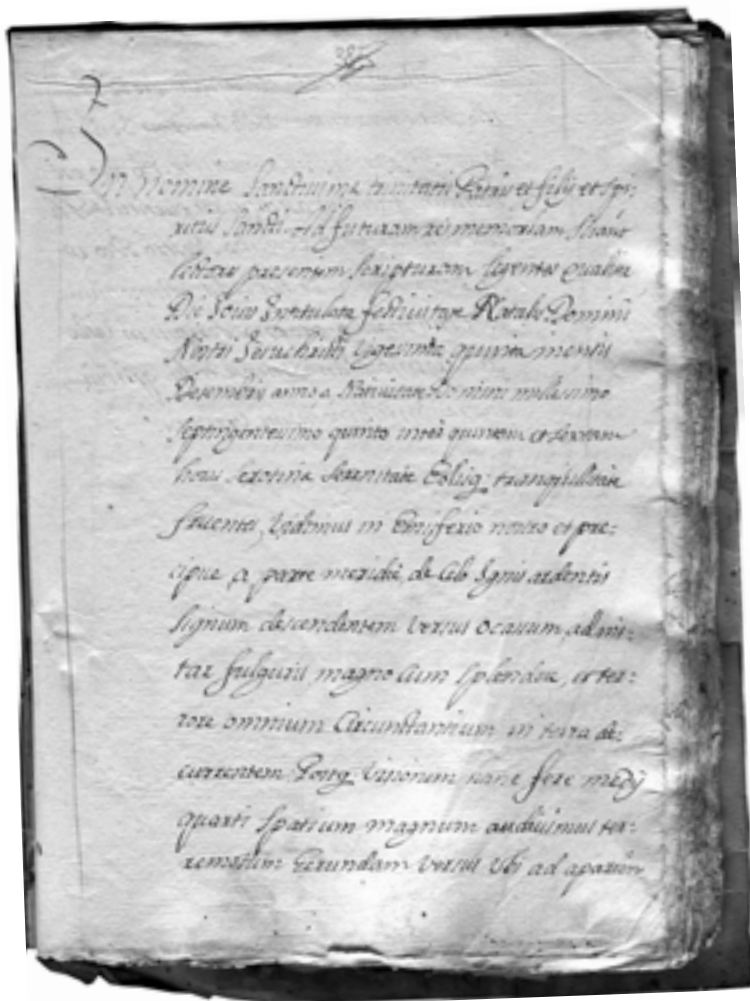 In Nomine Sanctissime trinitatis Patris et filij et Spi-
ritus Sancti. Ad futuram rei memoriam
presentem scripturam legentes qualiter
Die Jovis Intitulata festivitate Natalis Domini
Nostri vigesima quinta mensis
Desembris anno a Nativitate Domini millessimo
septingentesimo quinto inter quintam et sextam
horis serotina serenitate tranquillitate
fruentes, Vidimus in Emisferio nostro et pre-
cipue a parte meridie, de Celo Ignis ardentis
signum descendentem versus ocasum, ad ins-
tar fulguris magno cum splendore, et ter-
rore omnium Circunstantium in terra de-
currentem. Postq. visionem hanc fere medij
quarti spatium magnum audivimus ter-
remotum Gerundam versus Ubi ad